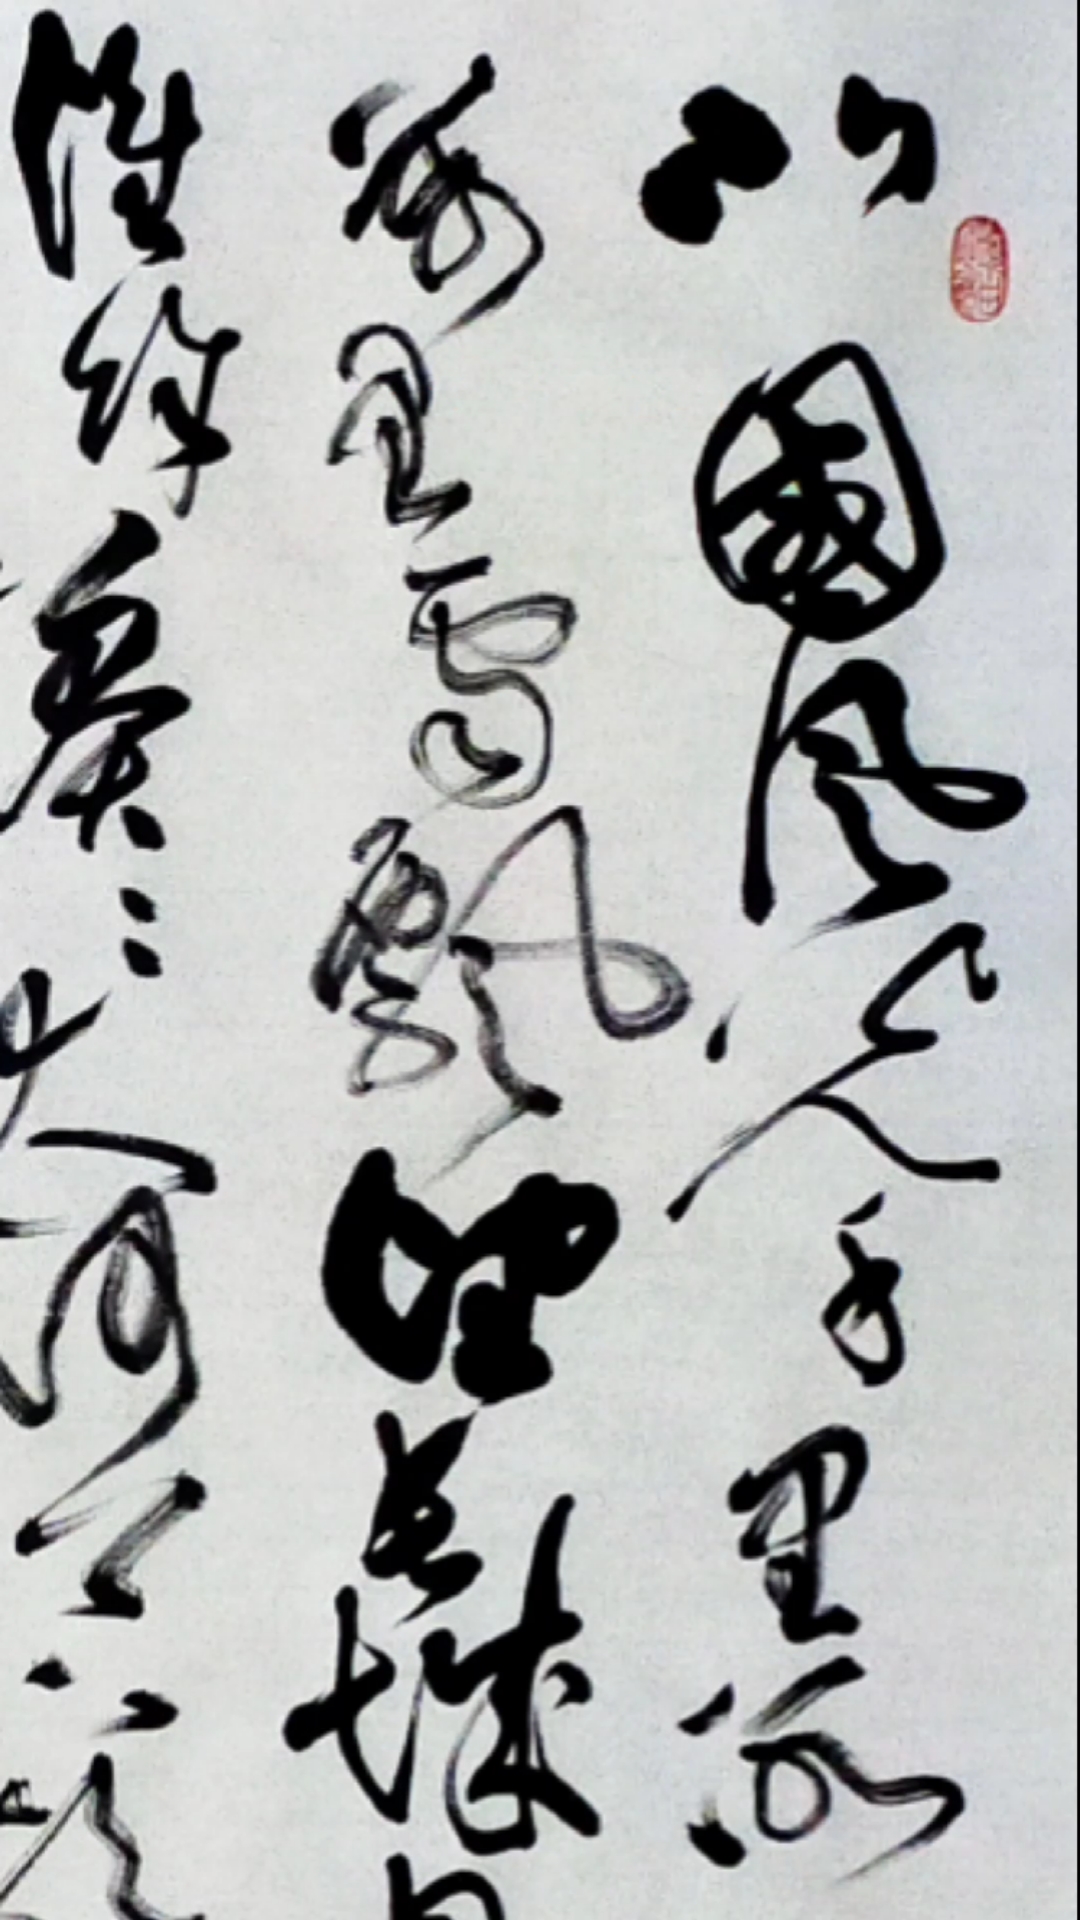 北國風光千里冰
萬里雪飄望長城內
惟餘莽莽大河上下